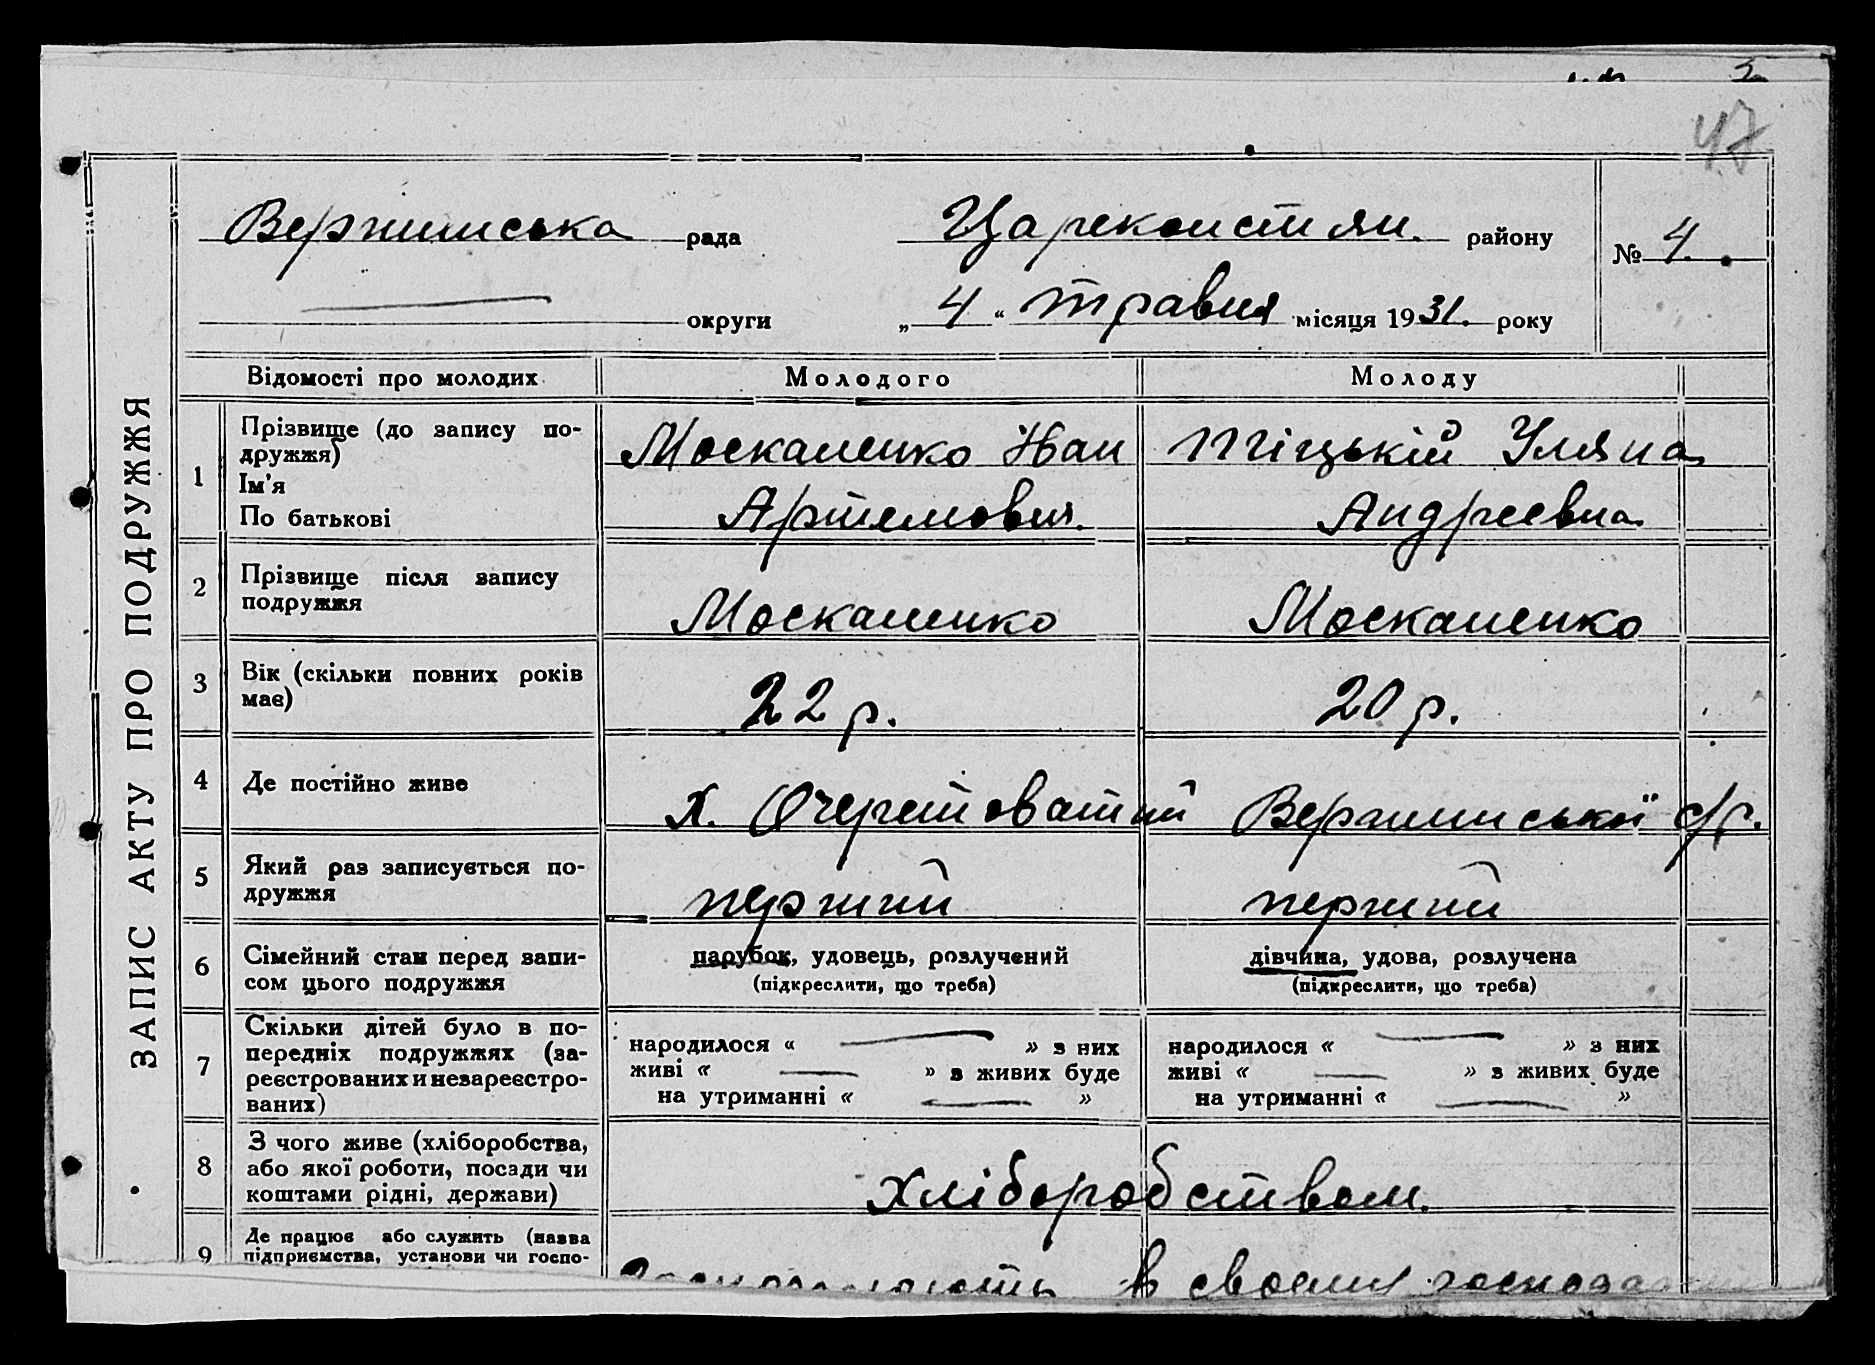 47
Вершинська рада Цареконстян. району № 4.
округи „ 4 “ травня місяця 1931. року
ЗАПИС АКТУ ПРО ПОДРУЖЖЯ
Відомості про молодих Молодого Молоду
1 Прізвище (до запису по-
дружжя)
Ім'я
По батькові
Москаленко Іван
Артемович.
Уляна
Андреевна
2 Прізвище після запису
подружжя
Москаленко Москаленко
3 Вік (скільки повних років
має)
22 р. 20 р.
4 Де постійно живе х. Очеретоватий Вершинської с/р.
5 Який раз записується по-
дружжя
перший перший
6 Сімейний стан перед запи-
сом цього подружжя
парубок, удовець, розлучений
(підкреслити, що треба)
дівчина, удова, розлучена
(підкреслити, що треба)
7 Скільки дітей було в по-
передніх подружжях (за-
реєстрованих и незареєстро-
ваних)
народилося « » з них
живі « » з живих буде
на утриманні « »
народилося « » з них
живі « » з живих буде
на утриманні « »
8 З чого живе (хліборобства,
або якої роботи, посади чи
коштами рідні, держави)
Хліборобством.
9 Де працює або служить (назва
підприємства, установи чи госпо-
в своему